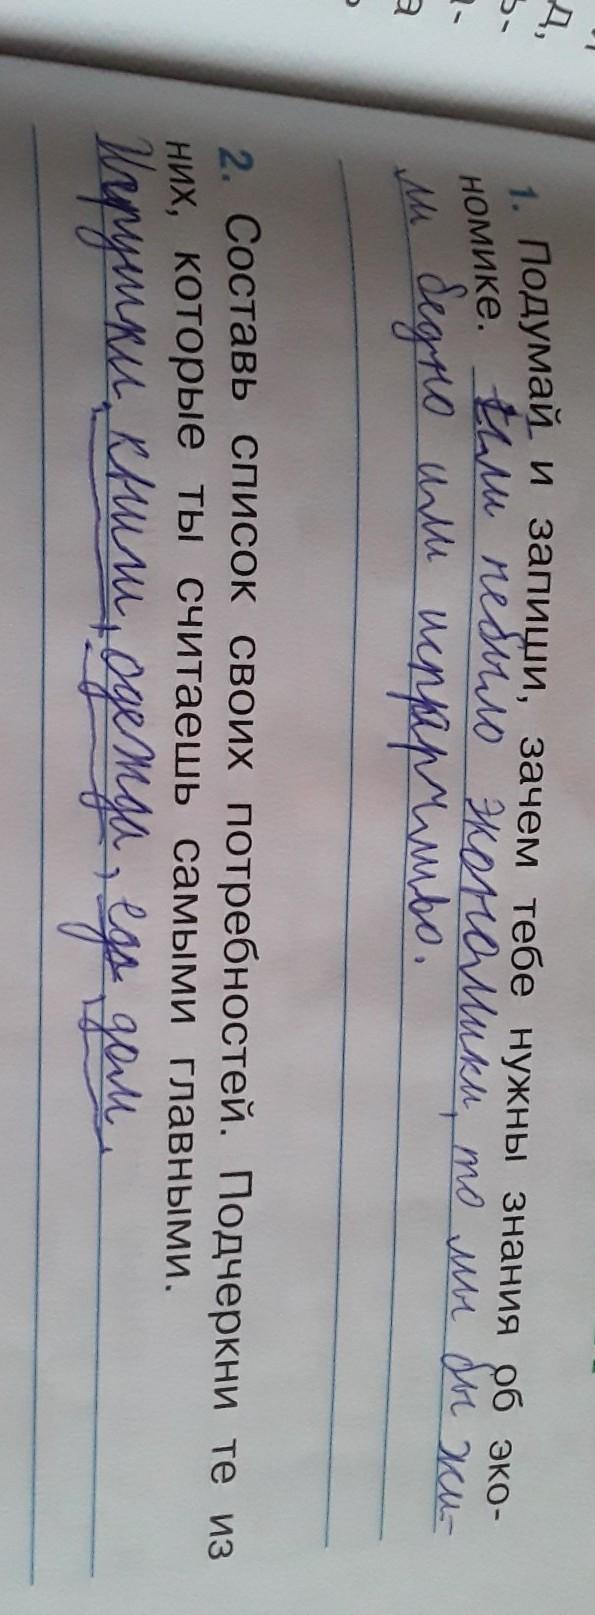 1. Подумай и запиши, зачем тебе нужны знания об эко-
номике. Если небыло экономики, то мы бы жи-
ли бедно или
2. Составь список своих потребностей. Подчеркни те из
них, которые ты считаешь самыми главными.
Игрушки, книги, одежда, еда, дом.